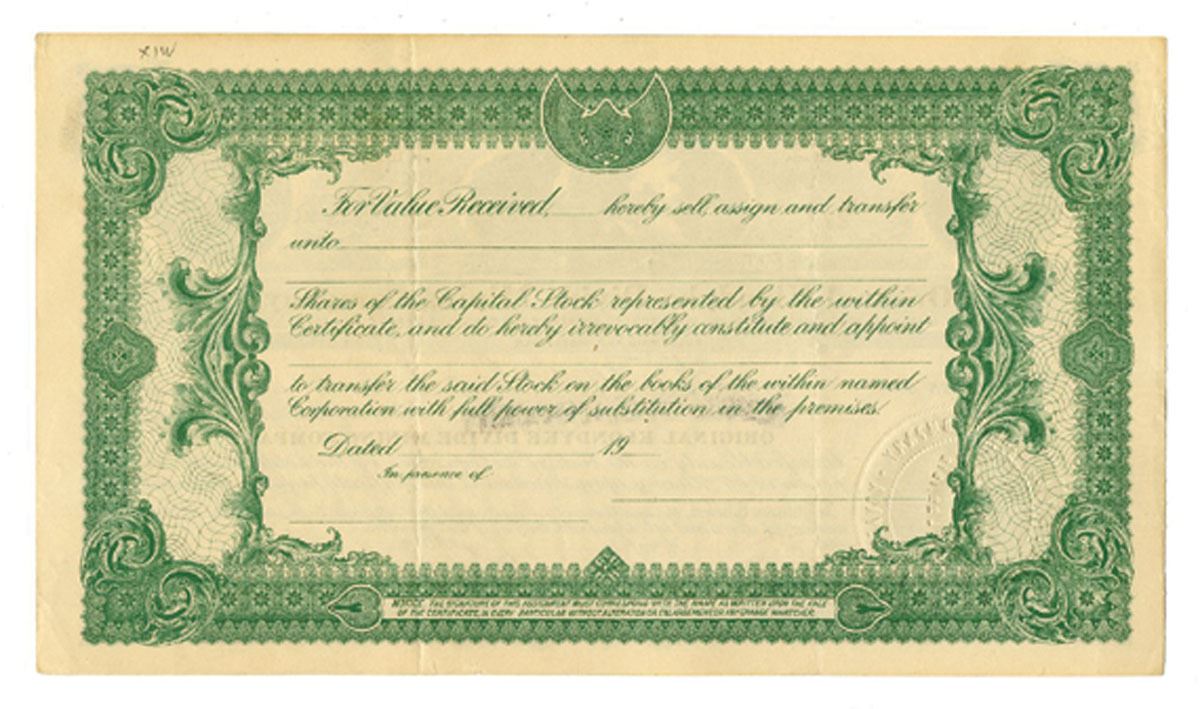 XIW
For Value Received, ____ hereby sell, assign and transfer
unto
Shares of the Capital Stock represented by the within
Certificate, and do hereby irrevocably constitute and appoint
to transfer the said Stock on the books of the within named
Corporation with full power of substitution in the premises.
Dated ____ 19
In presence of
NOTICE. THE SIGNATURE OF THIS ASSIGNMENT MUST CORRESPOND WITH THE NAME AS WRITTEN UPON THE FACE
OF THE CERTIFICATE, IN EVERY PARTICULAR WITHOUT ALTERATION OR ENLARGEMENT OR ANY CHANGE WHATEVER.